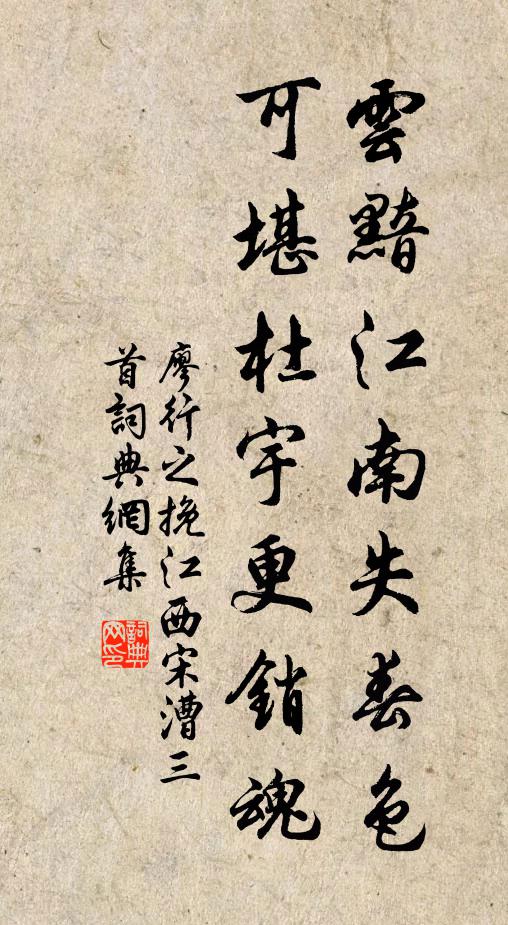 雲黯江南失春色
可堪杜宇更銷魂
廖行之挽江西宋漕三
首詞典網集
詞典
网印